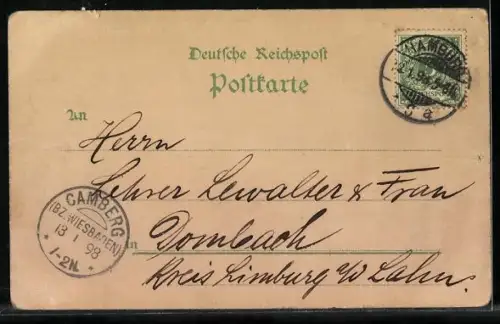 Deutsche Reichspost
Postkarte
HAMBURG
12.1.98
5 a
An
Herrn
Lehrer Lewalter & Frau
in Dombach
Kreis Limburg a/d Lahn.
CAMBERG
(BZ. WIESBADEN)
13 1 98
* 1-2N. *